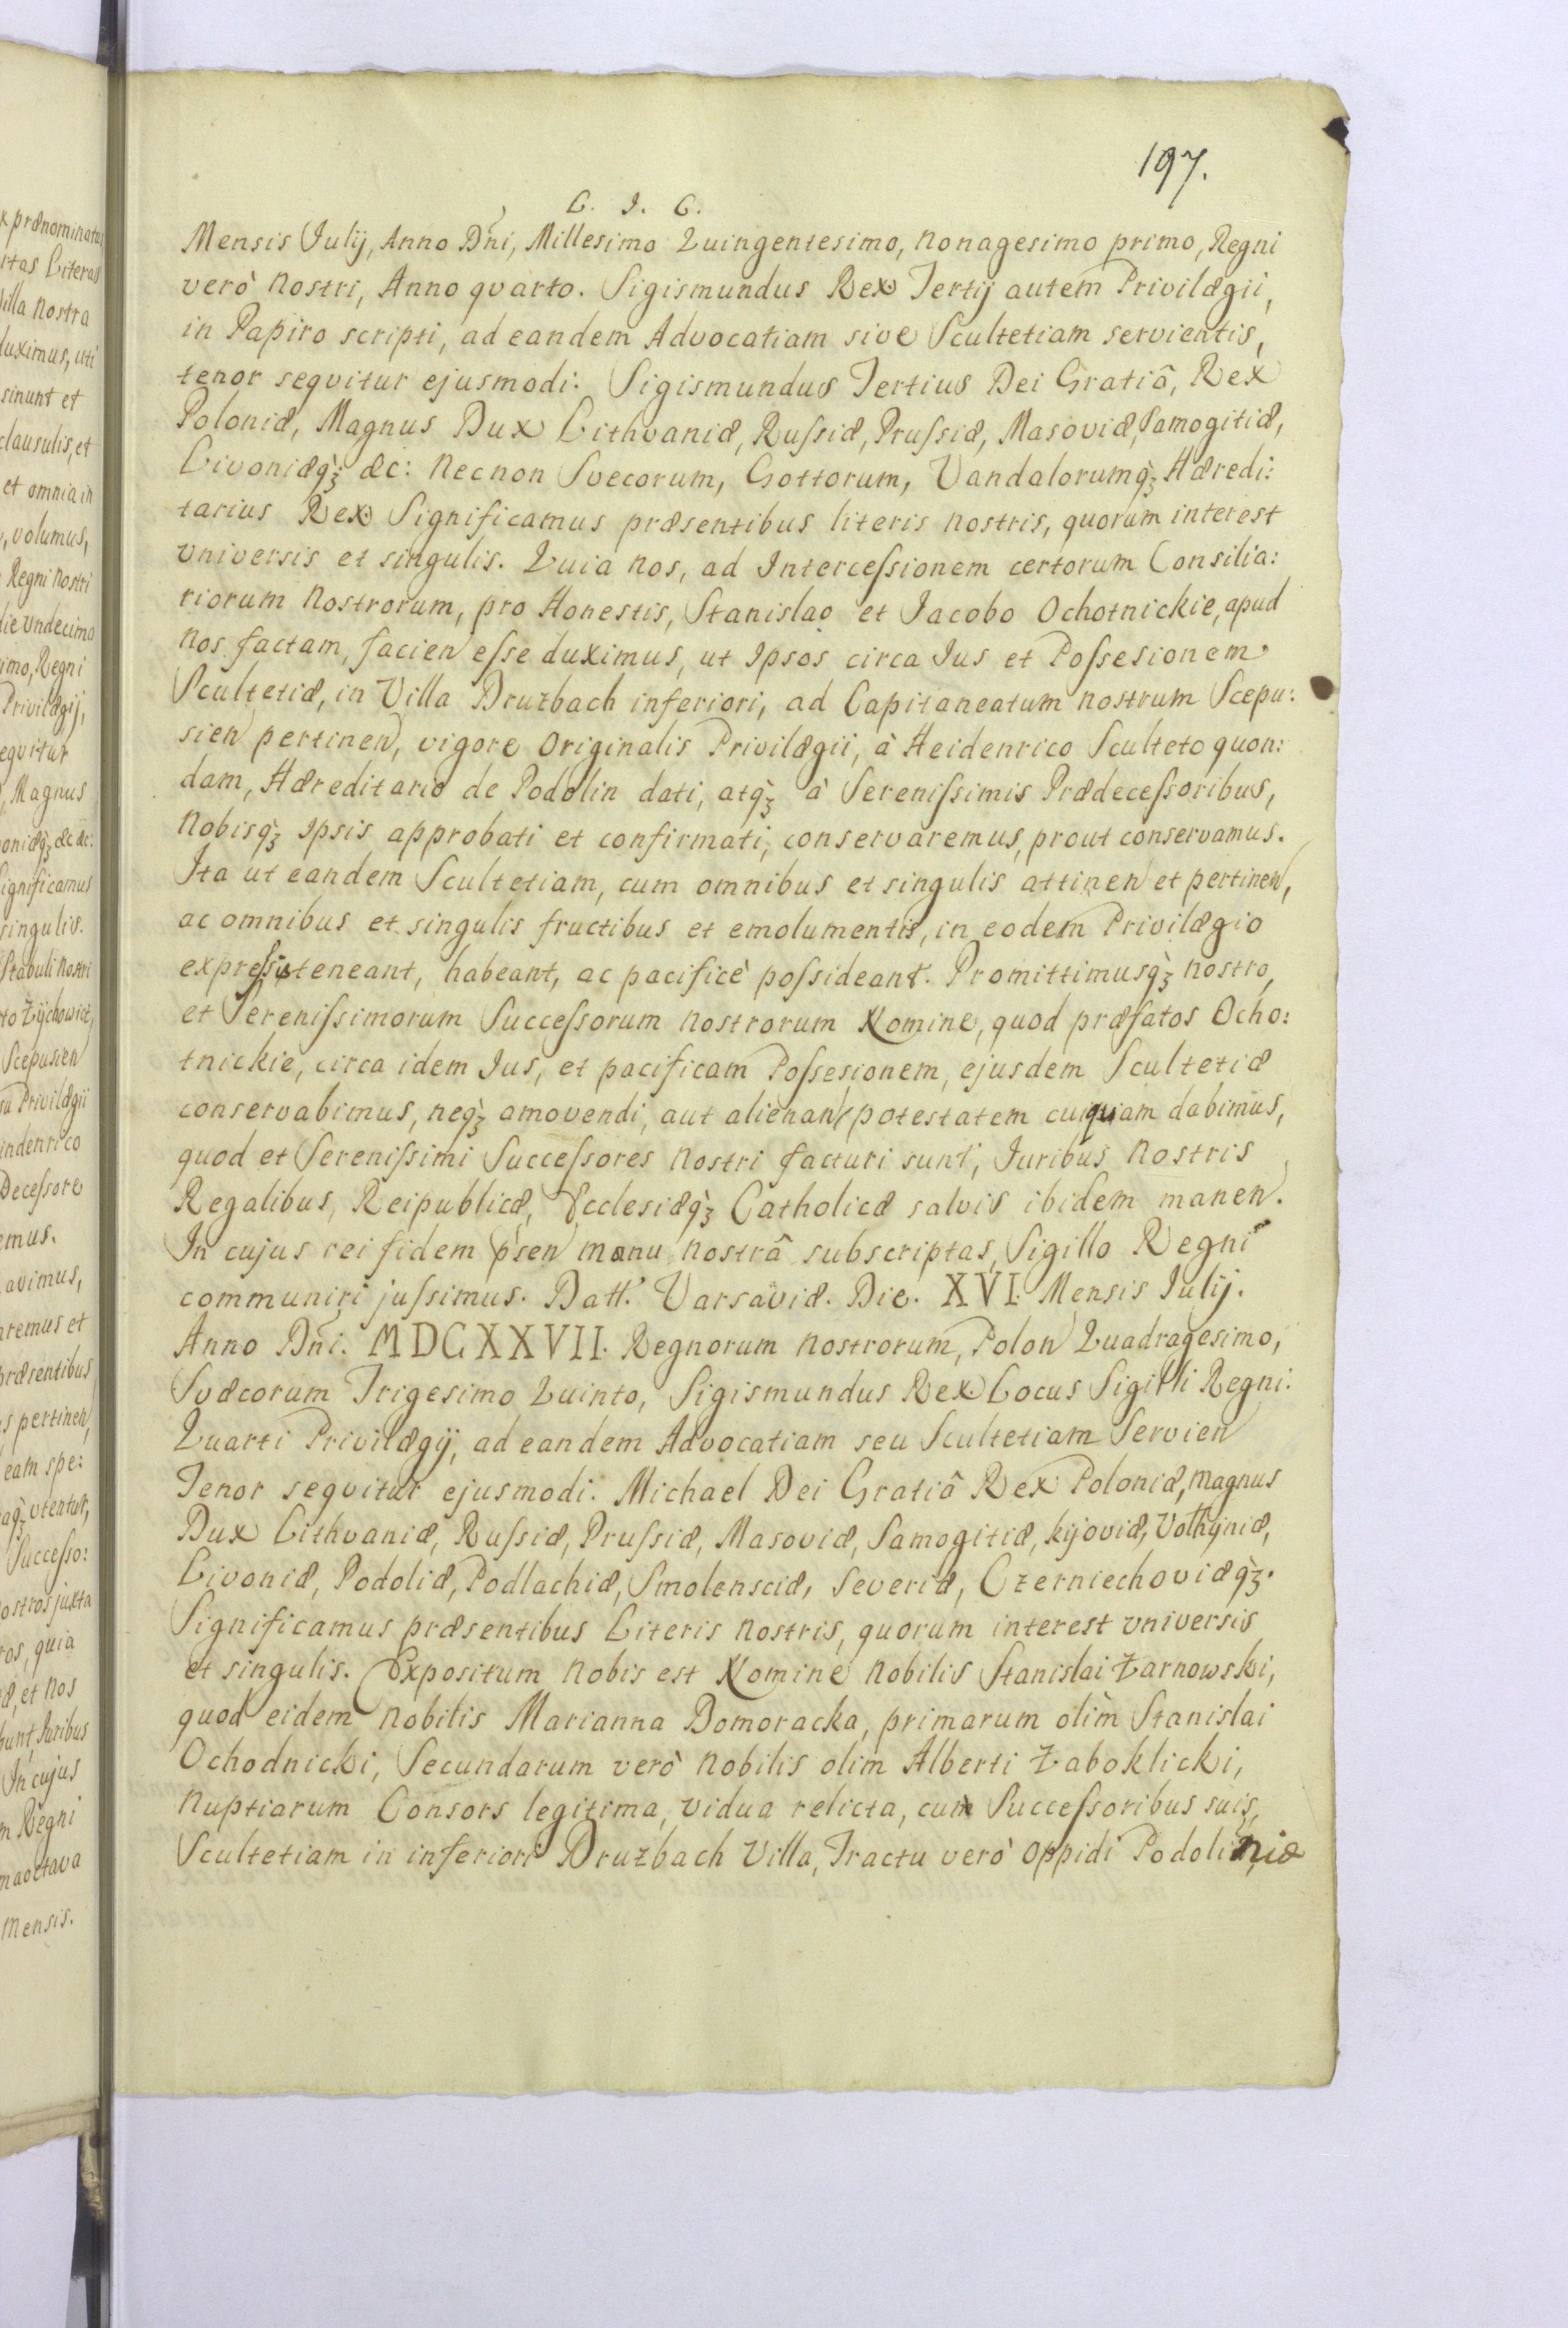 197.
C. I. C.
Mensis Julij, Anno Dñi, Millesimo Quingentesimo, Nonagesimo primo, Regni
verò Nostri, Anno qvarto. Sigismundus Rex Tertij autem Privilægii,
in Papiro scripti, ad eandem Advocatiam sive Scultetiam servientis,
tenor seqvitur ejusmodi: Sigismundus Tertius Dei Gratiâ, Rex
Poloniæ, Magnus Dux Lithvaniæ, Ruſsiæ, Pruſsiæ, Masoviæ, Samogitiæ,
Livoniæq̀ꝫ &c: Necnon Svecorum, Gottorum, Vandalorumq̀ꝫ Hæredi:
tarius Rex Significamus præsentibus literis nostris, quorum interest
vniversis et singulis. Quia Nos, ad Interceſsionem certorum Consilia:
riorum Nostrorum, pro Honestis, Stanislao et Jacobo Ochotnickie, apud
Nos factam, facien eſse duximus, ut Ipsos circa Jus et Poſsesionem
Scultetiæ, in Villa Druzbach inferiori, ad Capitaneatum nostrum Scepu:
sien pertinen, vigore Originalis Privilægii, à Heidenrico Sculteto quon:
dam, Hæreditario de Podolin dati, atq̀ꝫ à Sereniſsimis Prædeceſsoribus,
Nobisq̀ꝫ Ipsis approbati et confirmati, conservaremus, prout conservamus.
Ita ut eandem Scultetiam, cum omnibus et singulis attinen et pertinen,
ac omnibus et singulis fructibus et emolumentis, in eodem Privilægio
expreſsis teneant, habeant, ac pacificè poſsideant. Promittimusq̀ꝫ nostro,
et Sereniſsimorum Succeſsorum Nostrorum Nomine, quod præfatos Ocho:
tnickie, circa idem Jus, et pacificam Poſsesionem, ejusdem Scultetiæ
conservabimus, neq̀ꝫ amovendi, aut alienan potestatem cuiquam dabimus,
quod et Sereniſsimi Succeſsores Nostri facturi sunt, Juribus Nostris
Regalibus, Reipublicæ, Ecclesiæq̀ꝫ Catholicæ salvis ibidem manen.
In cujus rei fidem p̀sen manu nostrâ subscriptas, Sigillo Regni
communiri juſsimus. Datt. Varsaviæ. Die. XVI. Mensis Julij.
Anno Dñi. MDCXXVII. Regnorum Nostrorum, Polon Quadragesimo,
Svæcorum Trigesimo Quinto, Sigismundus Rex Locus Sigilli Regni:
Quarti Privilægij, ad eandem Advocatiam seu Scultetiam Servien
Tenor seqvitur ejusmodi. Michael Dei Gratiâ Rex Poloniæ, Magnus
Dux Lithvaniæ, Ruſsiæ, Pruſsiæ, Masoviæ, Samogitiæ, kijoviæ, Volhyniæ,
Livoniæ, Podoliæ, Podlachiæ, Smolensciæ, Severiæ, Czerniechoviæq̀ꝫ.
Significamus præsentibus Literis Nostris, quorum interest vniversis
et singulis. Expositum Nobis est Nomine Nobilis Stanislai Żarnowski,
quod eidem Nobilis Marianna Domoracka, primarum olìm Stanislai
Ochodnicki, Secundarum verò Nobilis olim Alberti Zaboklicki,
Nuptiarum Consors legitima, vidua relicta, cum Succeſsoribus suis,
Scultetiam in inferiori Druzbach Villa, Tractu verò Oppidi Podoliniæ